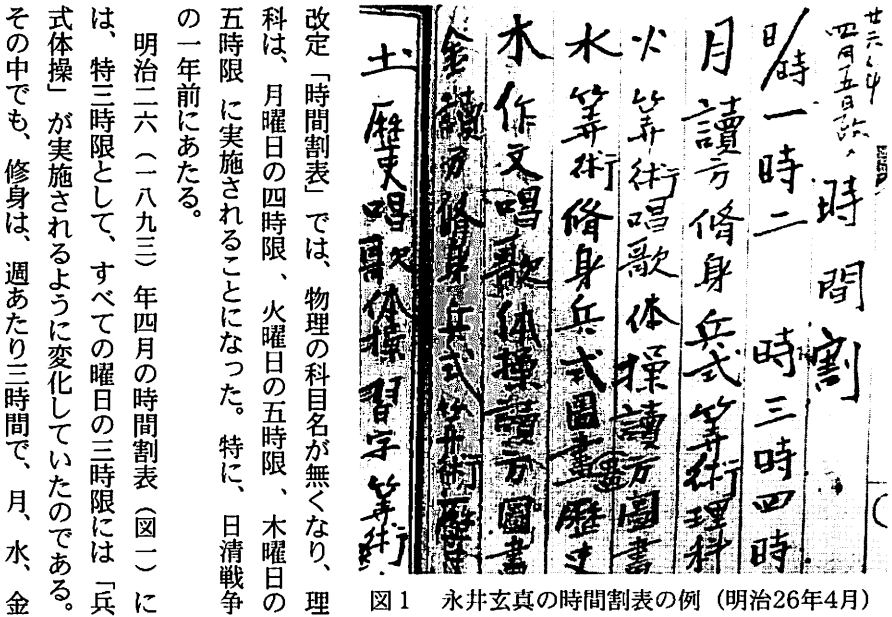 廿六年
四月五日改、
時間割
日/時一時二時三時四時
月讀方脩身兵式筭術理科
火筭術唱歌体操讀方圖畫
水筭術脩身兵式圖畫歴史
木作文唱歌体操讀方圖畫
金讀方脩身兵式筭術歴史
土歴史唱歌体操習字筭術
図1　永井玄真の時間割表の例（明治26年4月）
改定「時間割表」では、物理の科目名が無くなり、理
科は、月曜日の四時限、火曜日の五時限、木曜日の
五時限に実施されることになった。特に、日清戦争
の一年前にあたる。
明治二六（一八九三）年四月の時間割表（図一）に
は、特三時限として、すべての曜日の三時限には「兵
式体操」が実施されるように変化していたのである。
その中でも、修身は、週あたり三時間で、月、水、金